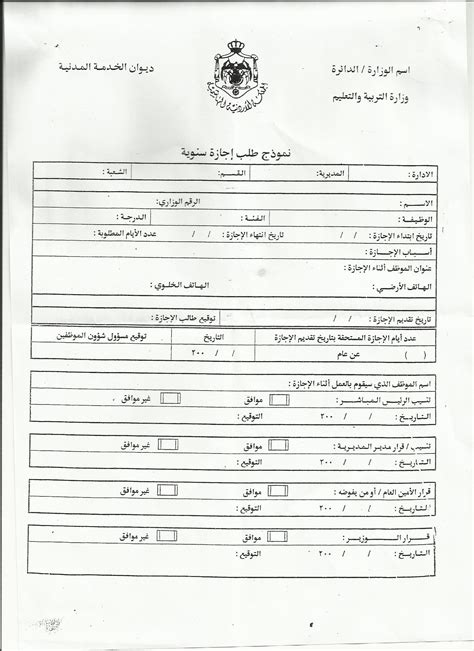 اسم الوزارة / الدائرة
وزارة التربية والتعليم
ديوان الخدمة المدنية
المملكة الأردنية الهاشمية
نموذج طلب إجازة سنوية
الادارة : المديرية : القسم : الشعبة :
الاسم : الرقم الوزاري :
الوظيفة : الفئة : الدرجة :
تاريخ ابتداء الإجازة : / / تاريخ انتهاء الإجازة : / / عدد الأيام المطلوبة :
أسباب الإجازة :
عنوان الموظف أثناء الإجازة :
الهاتف الأرضي : الهاتف الخلوي :
تاريخ تقديم الإجازة : / / توقيع طالب الإجازة :
عدد أيام الإجازة المستحقة بتاريخ تقديم الإجازة التاريخ توقيع مسؤول شؤون الموظفين
( ) عن عام / / ٢٠٠
اسم الموظف الذي سيقوم بالعمل أثناء الإجازة :
تنسيب الرئيس المباشر : موافق غير موافق
التاريخ : / / ٢٠٠ التوقيع :
تنسيب / قرار مدير المديرية : موافق غير موافق
التاريخ : / / ٢٠٠ التوقيع :
قرار الأمين العام / أو من يفوضه : موافق غير موافق
التاريخ : / / ٢٠٠ التوقيع :
قرار الوزير : موافق غير موافق
التاريخ : / / ٢٠٠ التوقيع :